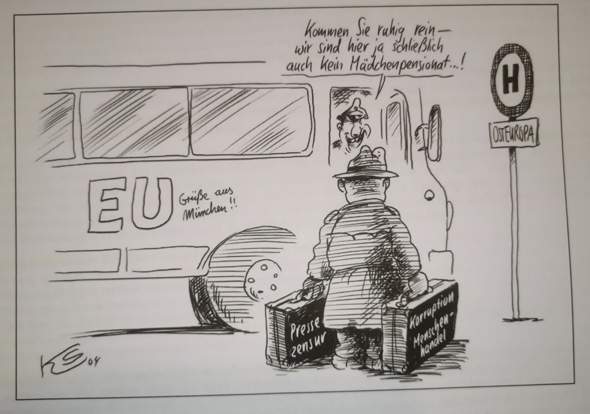 Kommen Sie ruhig rein–
wir sind hier ja schließlich
auch kein Mädchenpensionat...!
H
OSTEUROPA
EU
Grüße aus
München!!
Presse
zensur
Korruption
Menschen-
handel
KS 04